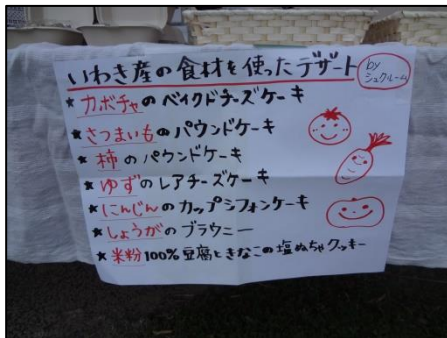 いわき産の食材を使ったデザート
by シュクルーム
★カボチャのベイクドチーズケーキ
★さつまいものパウンドケーキ
★柿のパウンドケーキ
★ゆずのレアチーズケーキ
★にんじんのカップシフォンケーキ
★しょうがのブラウニー
★米粉100%豆腐ときなこの塩ぬちゃクッキー